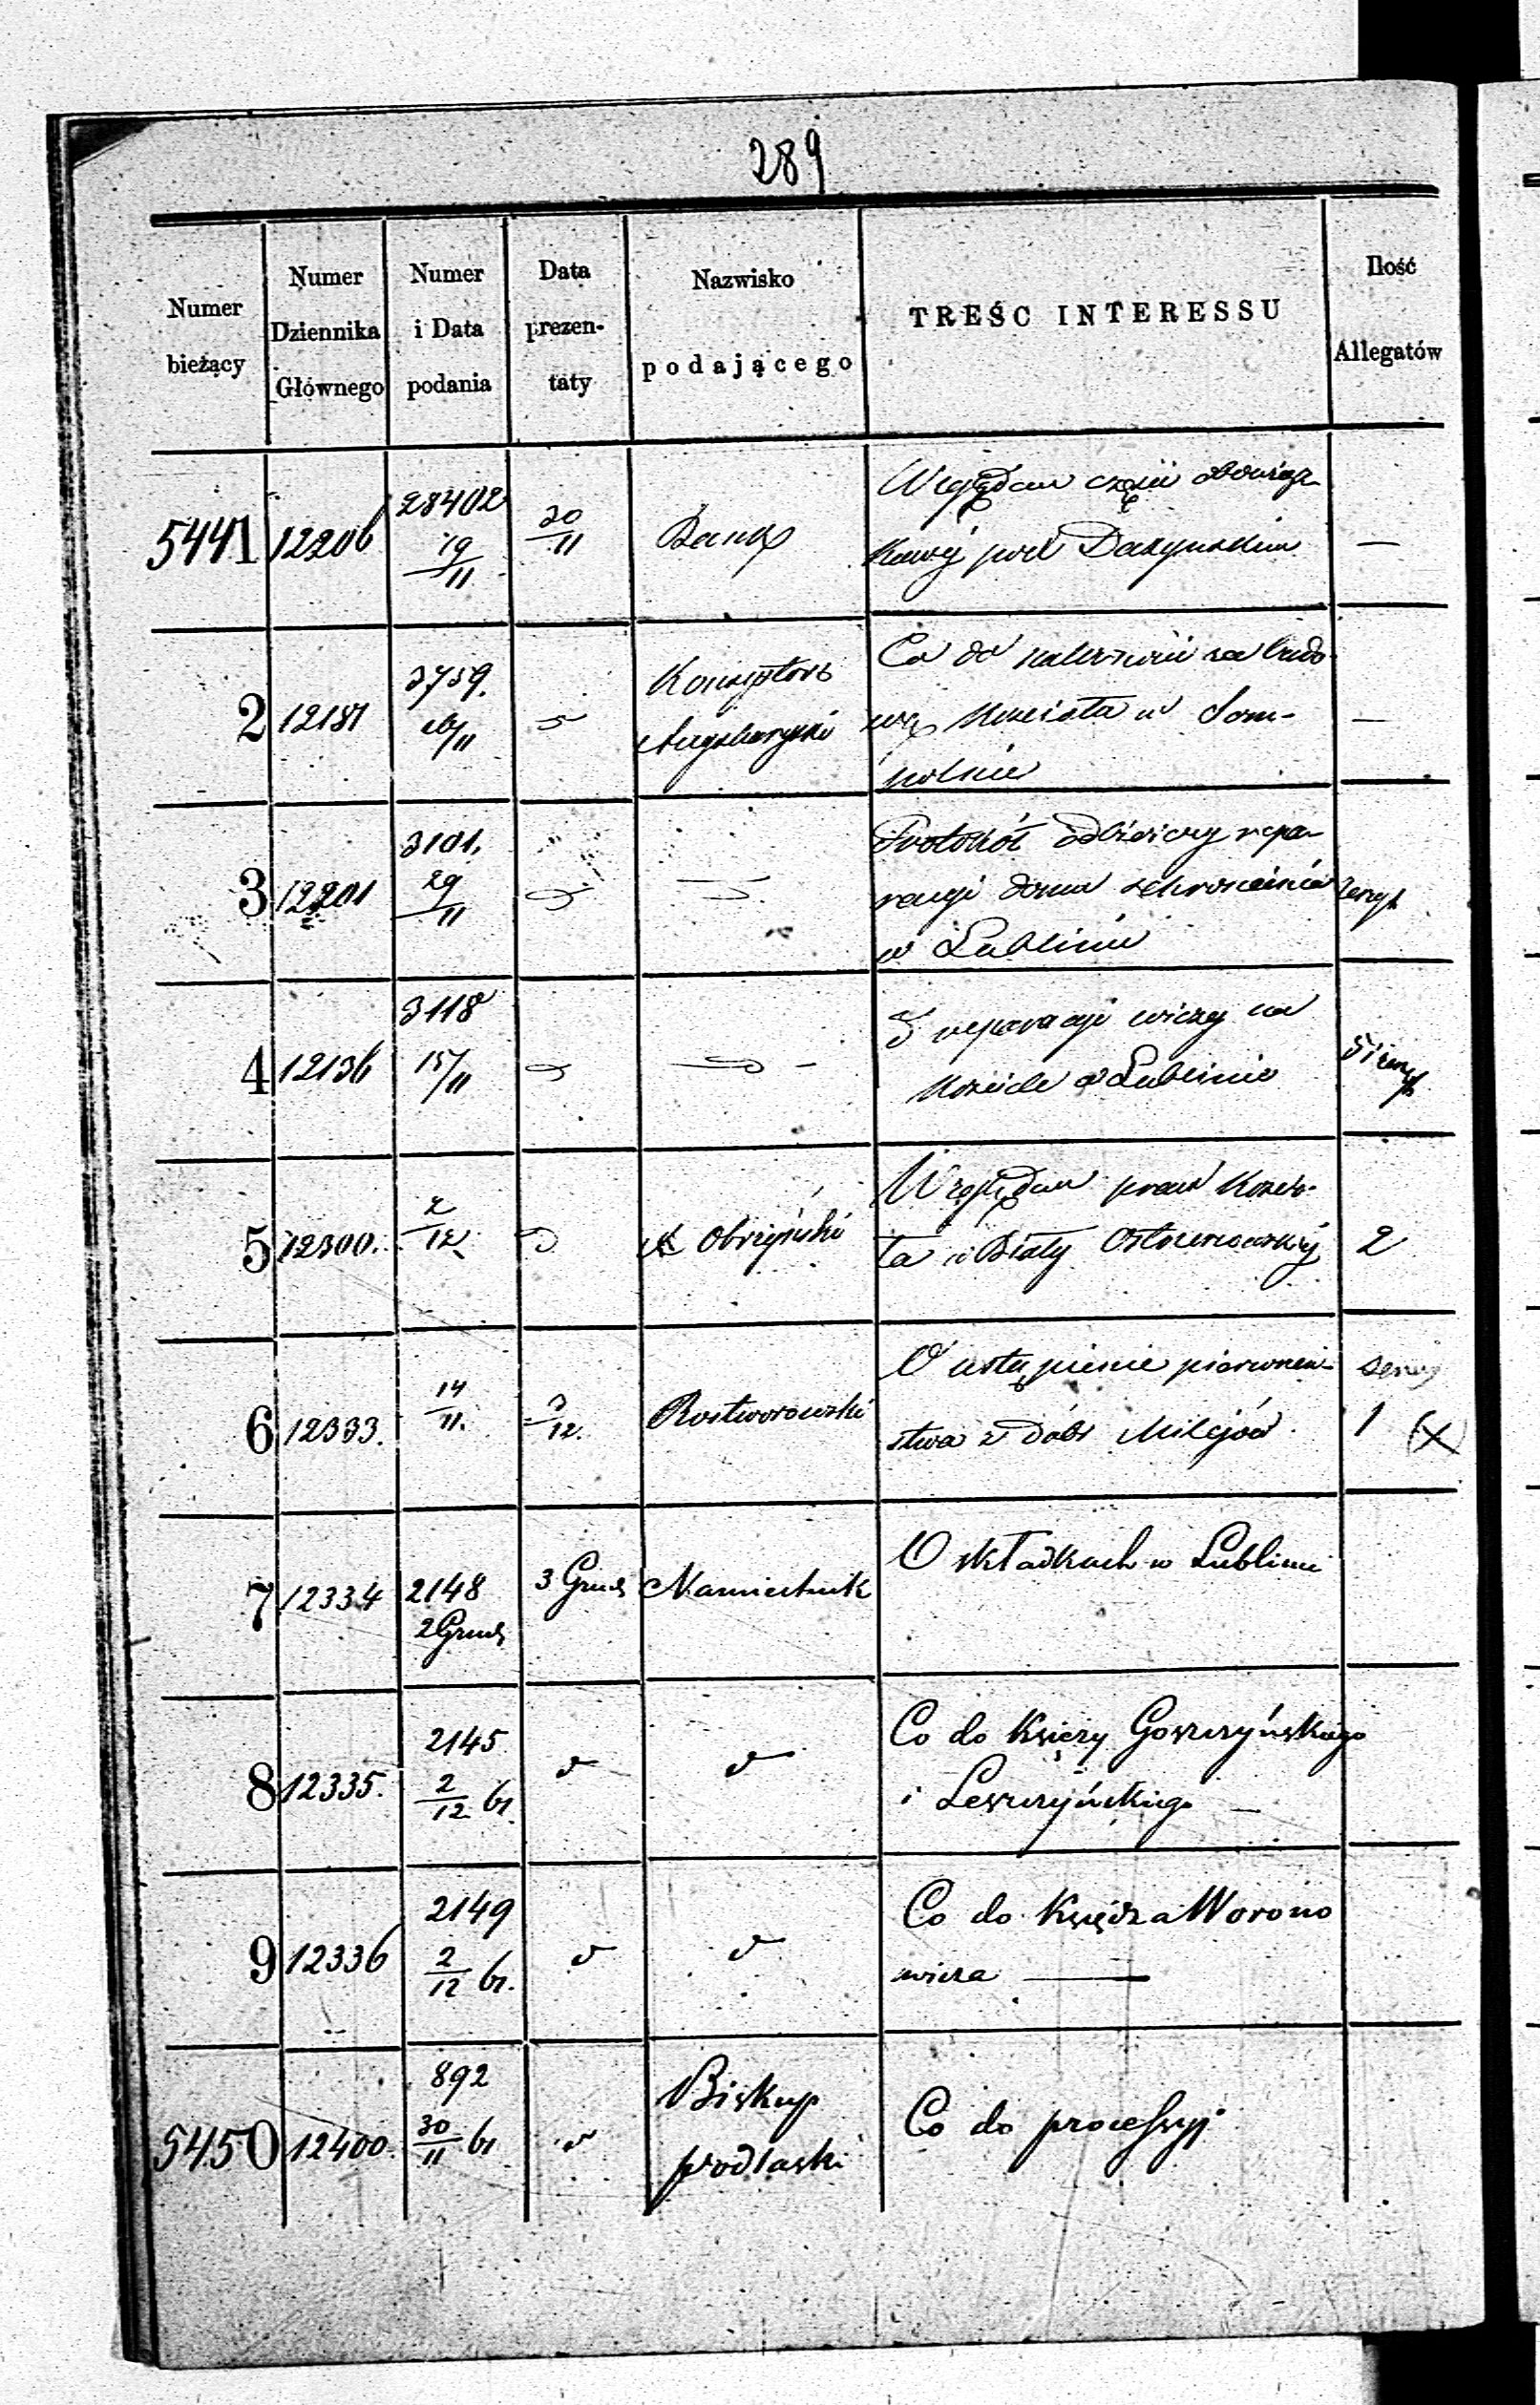 289
Numer
bieżący
Numer
Dziennika
Głównego
Numer
i Data
podania
Data
prezen-
taty
Nazwisko
podającego
TREŚC INTERESSU
Ilość
Allegatów
5441 12206 28402 19/11 30/11 Bank
Względem części obowiąz-
kowéj pod Daszynskim —
2 12187 3759. 16/11 Konsystorz
Augsburgski
Co do należności za budo-
wę Kościoła w Som-
polnie —
3 12201 3101. 29/11
Protokół odbiorczy repa-
racyi domu schronienia
w Lublinie
4 12136 3118 15/11
Z reparacyi wieży na
Kościele w Lublinie
5 12300. 2/12 Obrzyński
Względem praw Kościo-
ła w Biały 2
6 12333. 14/11. 3/12. Rostworowski
O ustąpienie pierwszeń-
stwa z dóbr Milejów. 1 (X)
7 12334 2148
2 Grud 3 Grud Namiestnik
O składkach w Lublinie
8 12335. 2145 2/12 br
Co do Księży Goszczyńskiego
i Leszczyńskiego —
9 12336 2149 2/12 br.
Co do Księdza Worono
wicza —
5450 12400. 892 30/11 br Biskup
podlaski
Co do processyj